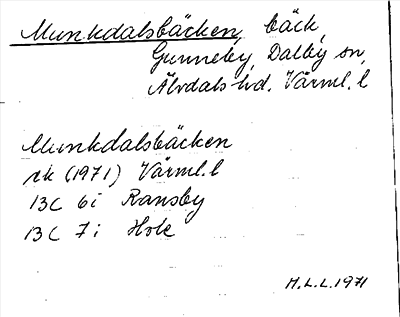 Munkdalsbäcken, bäck,
Gunneby, Dalby sn,
Älvdals hd. Värml. l
Munkdalsbäcken
rk (1971) Värml. l
13C 6i Ransby
13C 7i Hole
H.L.L. 1971